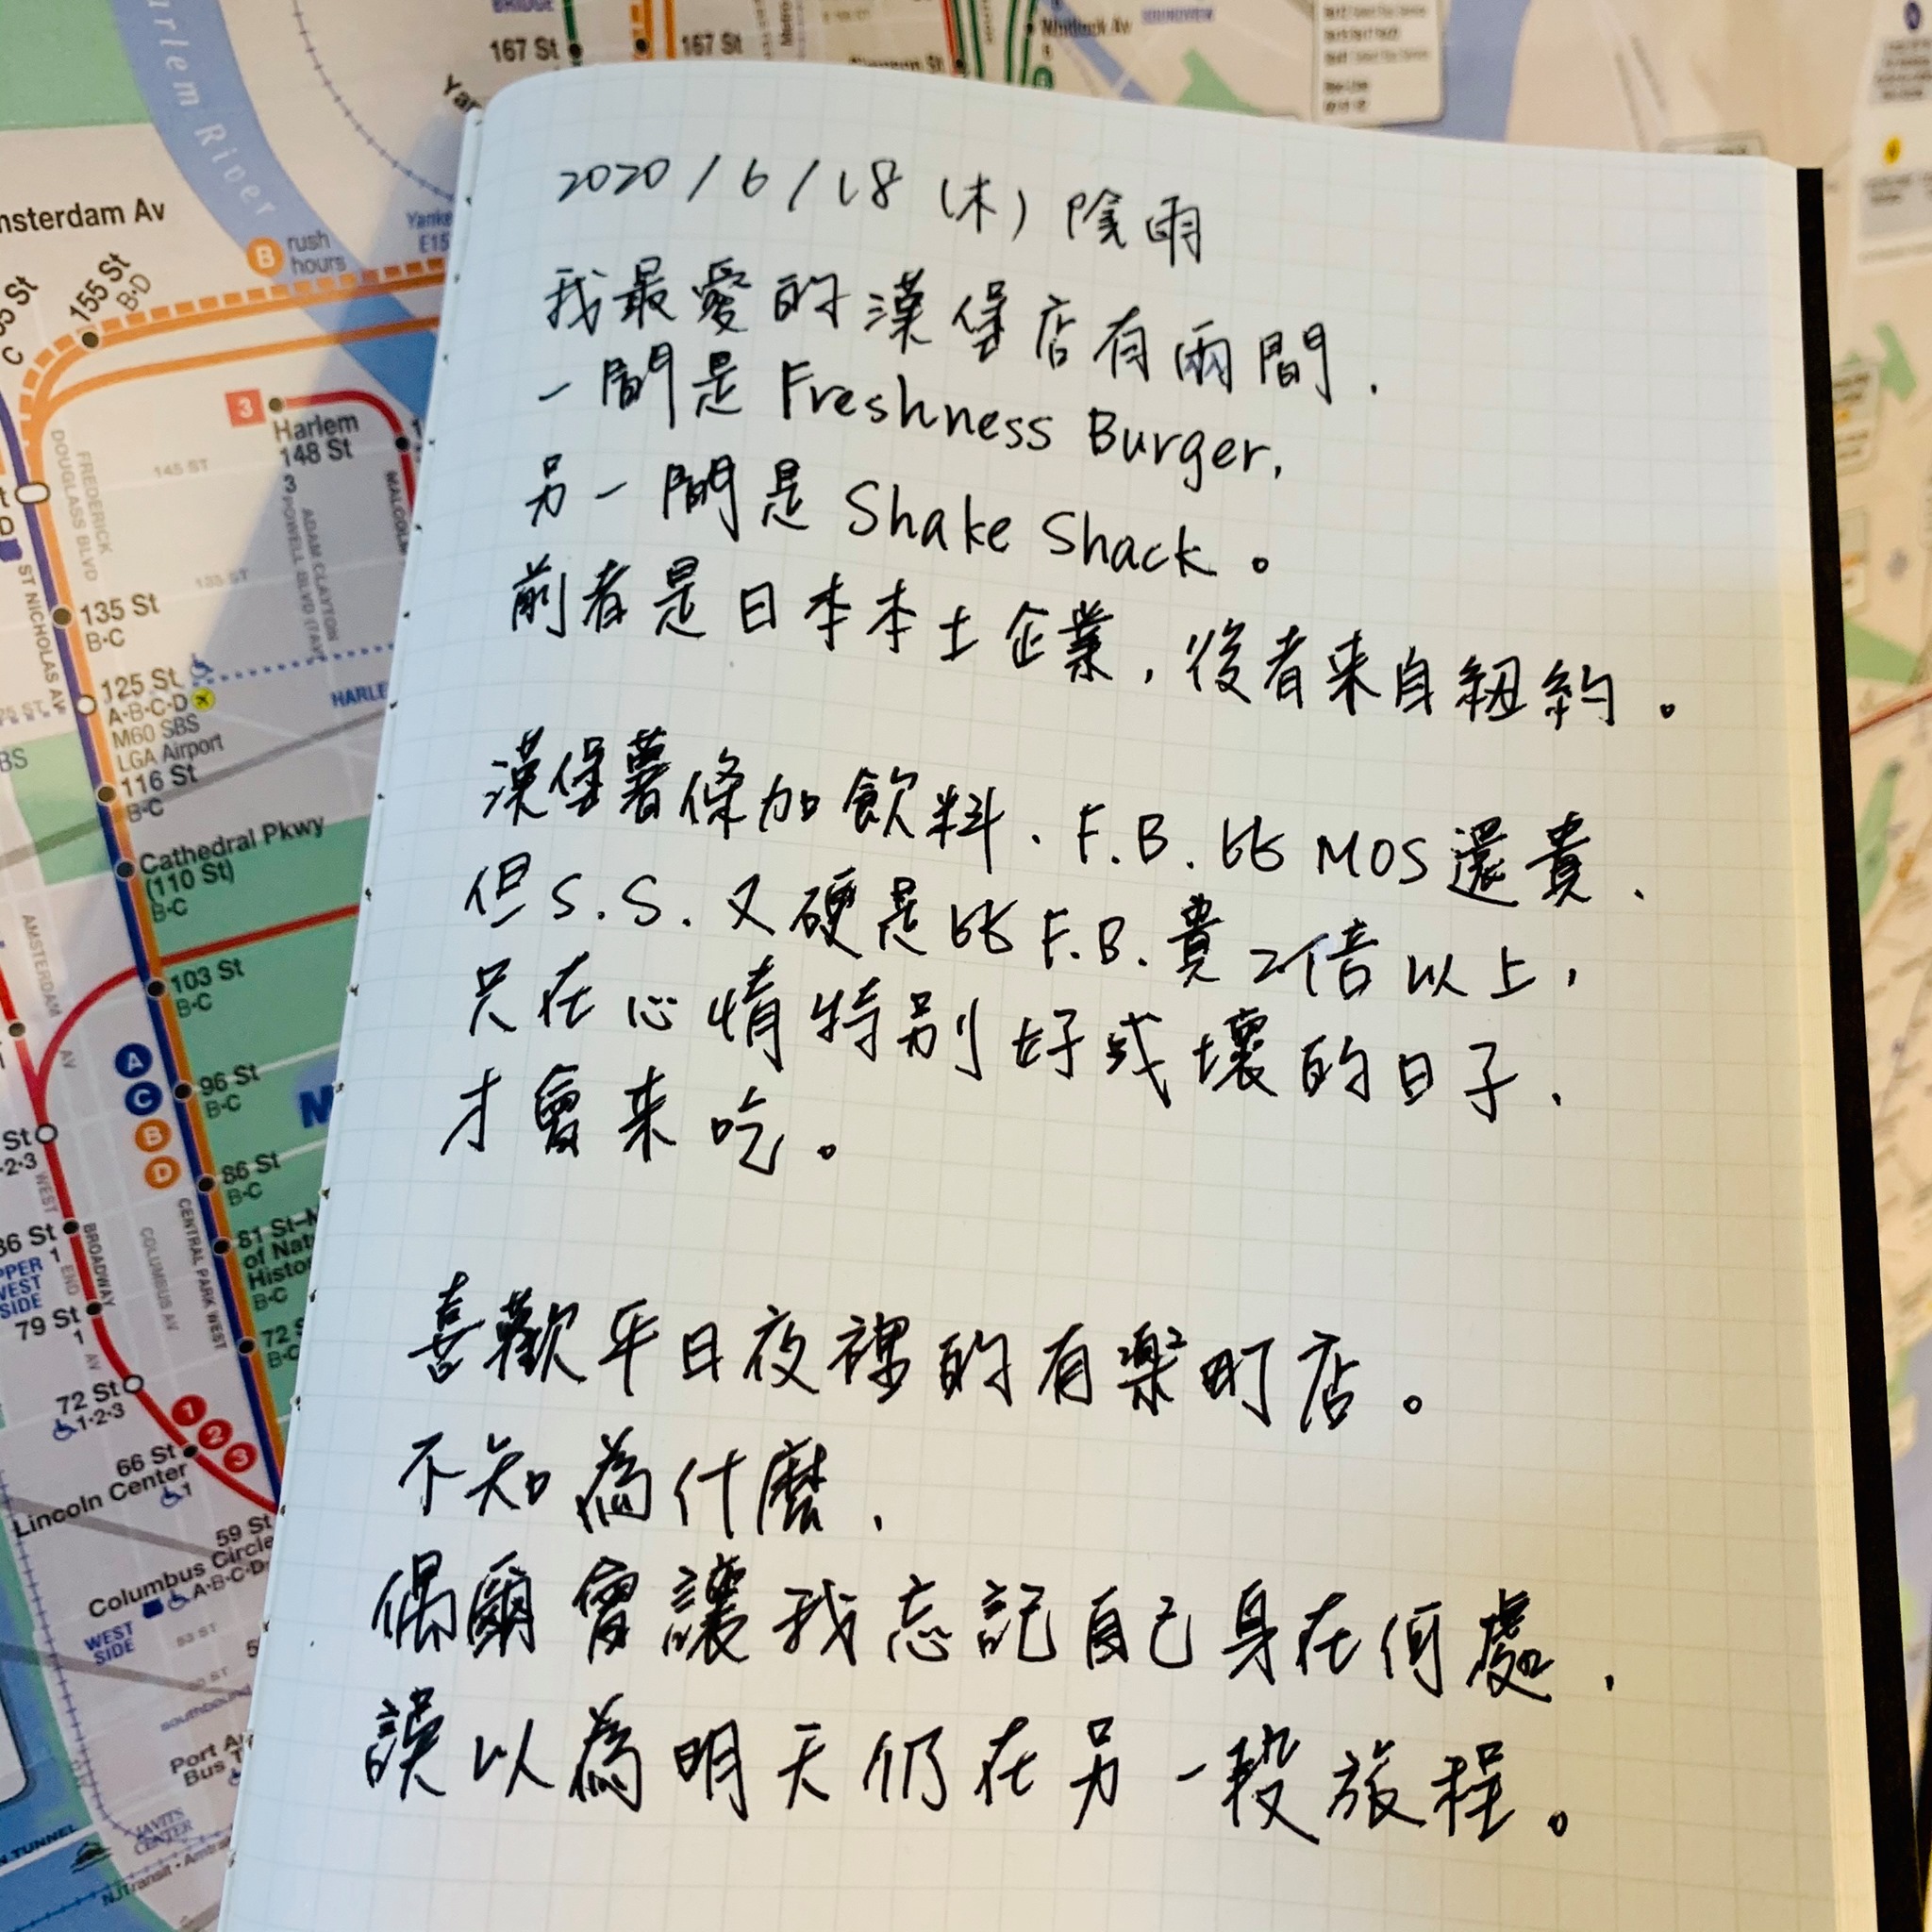 2020/6/18 (木) 陰雨
我最愛的漢堡店有兩間,
一間是 Freshness Burger,
另一間是 Shake Shack。
前者是日本本土企業,後者來自紐約。
漢堡薯條加飲料、F.B.比MOS還貴、
但S.S.又硬是比F.B.貴2倍以上,
只在心情特別好或壞的日子、
才會來吃。
喜歡平日夜裡的有楽町店。
不知為什麼、
偶爾會讓我忘記自己身在何處、
誤以為明天仍在另一段旅程。
167 St
167 St
Harlem River
Amsterdam Av
B rush hours
155 St
B·D
3
Harlem
148 St
3
145 ST
FREDERICK
DOUGLASS BLVD
ADAM CLAYTON
POWELL BLVD (7AV)
ST NICHOLAS AV
135 St
B·C
125 St
A·B·C·D
M60 SBS
LGA Airport
116 St
B·C
Cathedral Pkwy
(110 St)
B·C
AMSTERDAM
AV
103 St
B·C
A
C
B
D
96 St
B·C
86 St
B·C
CENTRAL PARK WEST
COLUMBUS AV
BROADWAY
81 St
B·C
86 St
1
79 St
1
72 St
1·2·3
1
2
3
66 St
Lincoln Center
1
59 St
Columbus Circle
A·B·C·D
WEST
SIDE
JAVITS
CENTER
TUNNEL